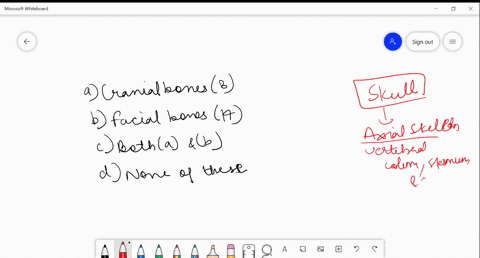 Microsoft Whiteboard
Sign out
a) Cranial bones (8)
b) facial bones (14)
c) Both (a) & (b)
d) None of these
Skull
Axial Skeleton
vertebral
column, sternum